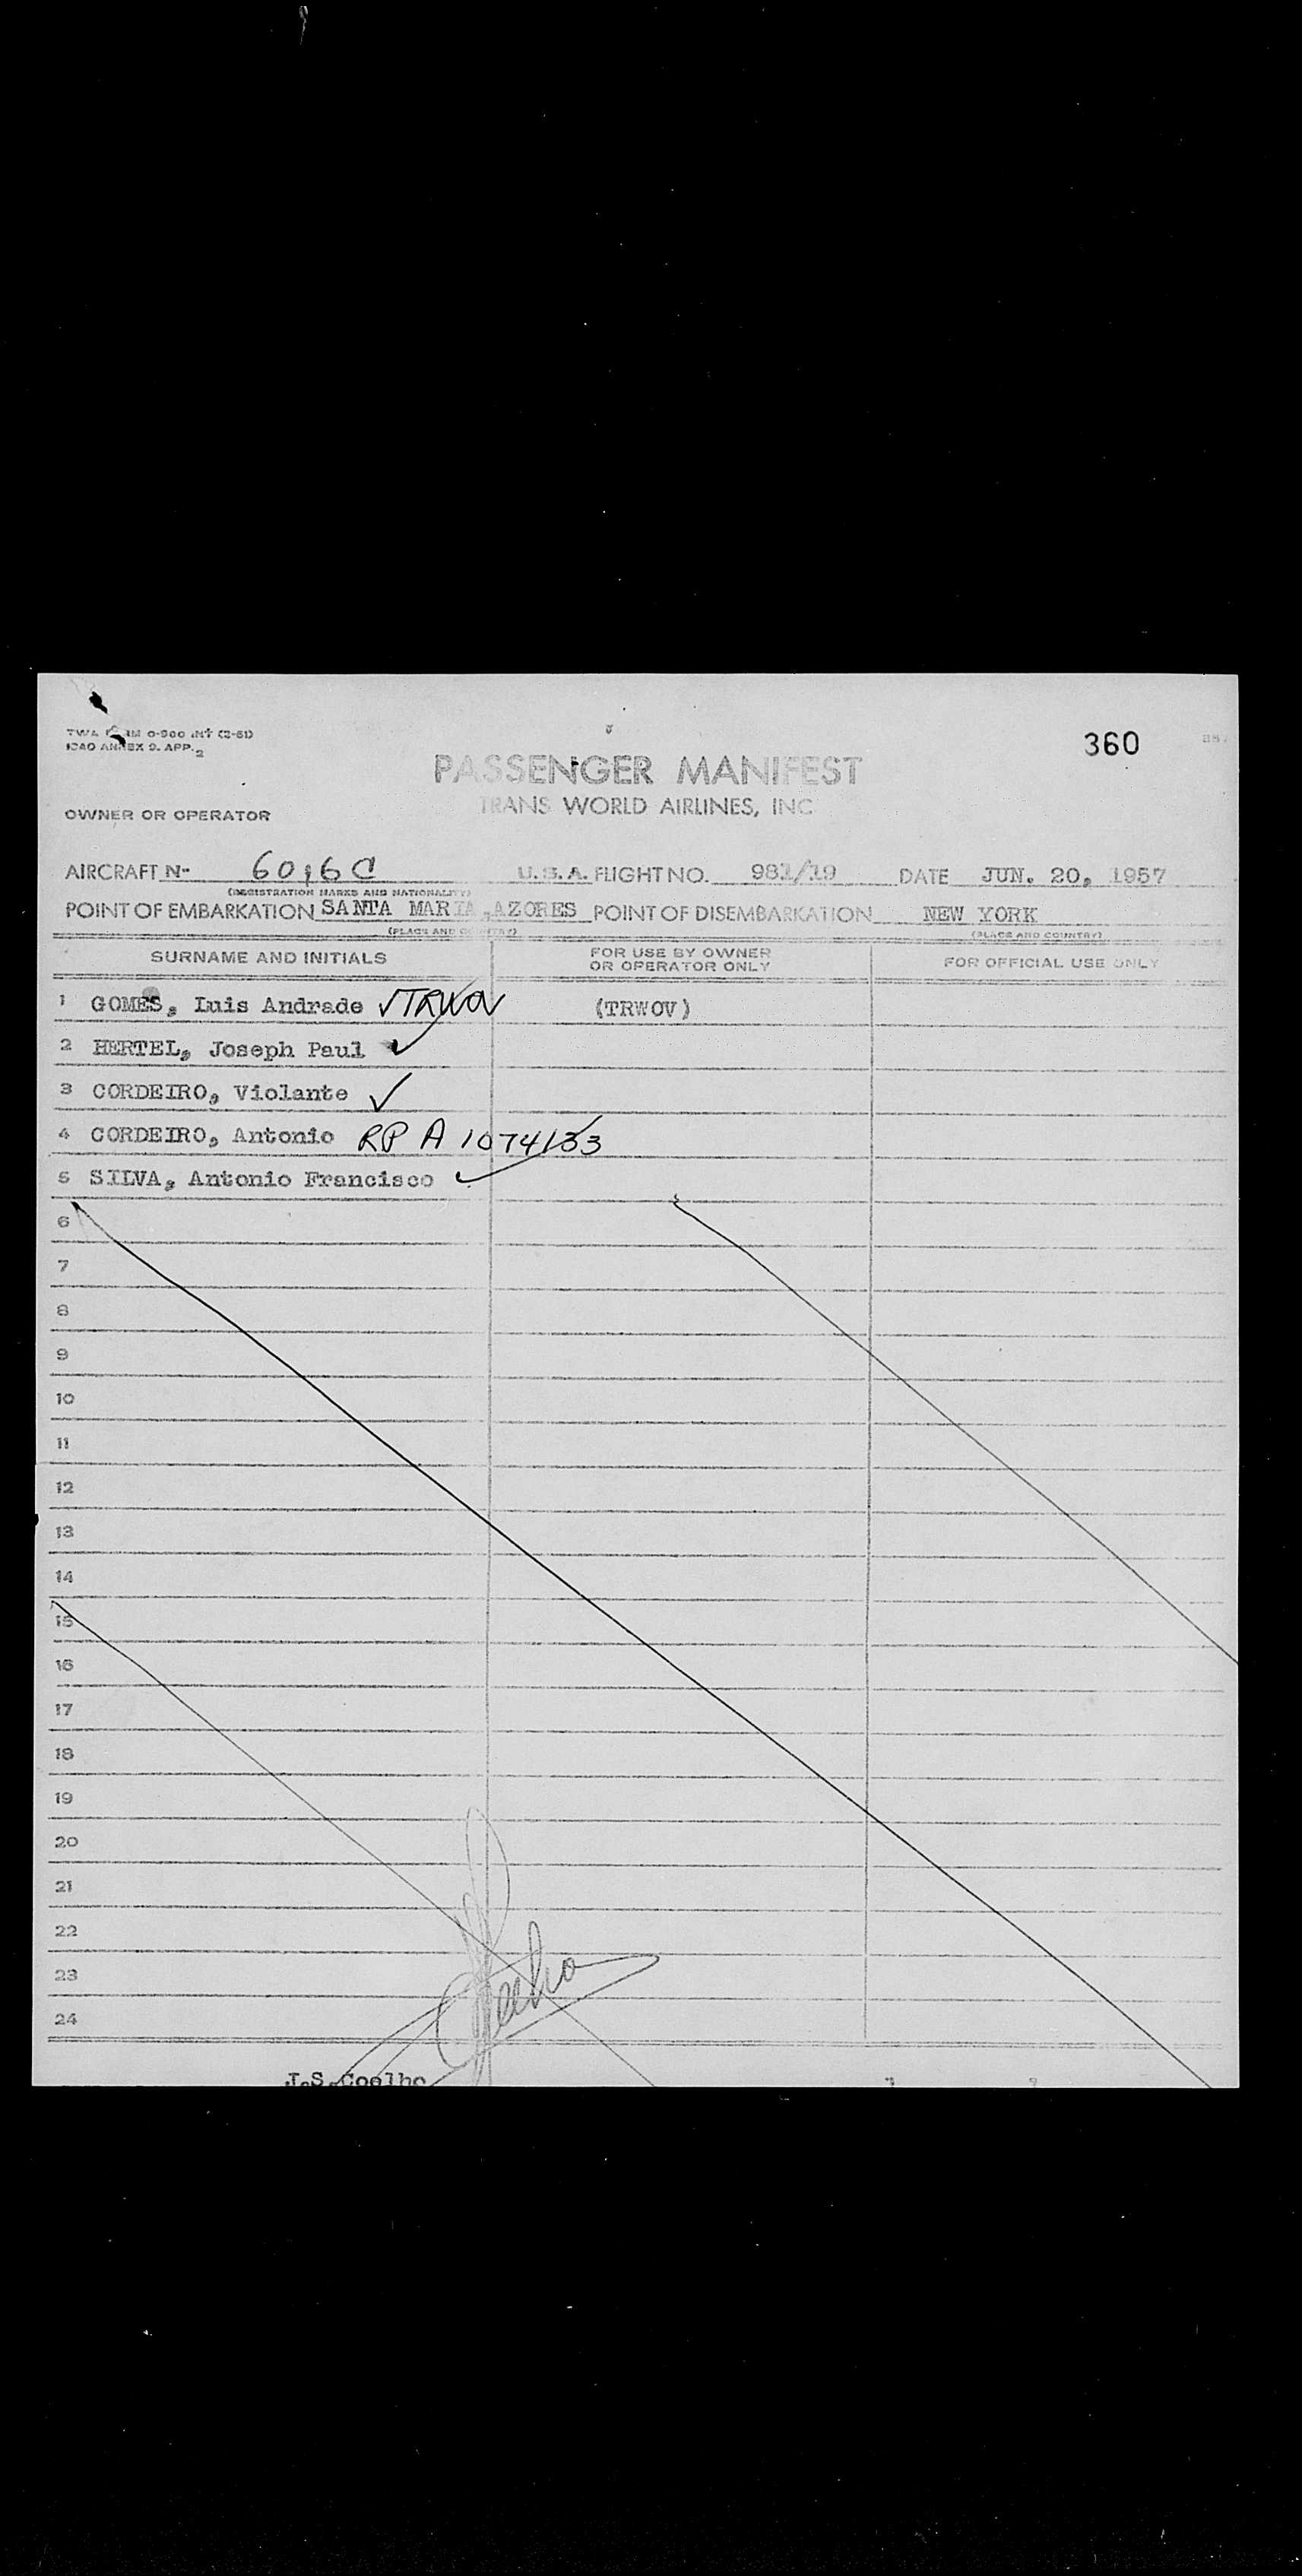 TWA FORM 0-900 INT (2-51)
ICAO ANNEX 9. APP. 2
360
PASSENGER MANIFEST
TRANS WORLD AIRLINES, INC
OWNER OR OPERATOR
AIRCRAFT N- 6016C U.S.A. FLIGHT NO. 981/19 DATE JUN. 20, 1957
(REGISTRATION MARKS AND NATIONALITY)
POINT OF EMBARKATION SANTA MARIA, AZORES POINT OF DISEMBARKATION NEW YORK
(PLACE AND COUNTRY) (PLACE AND COUNTRY)
SURNAME AND INITIALS FOR USE BY OWNER OR OPERATOR ONLY FOR OFFICIAL USE ONLY
1 GOMES, Luis Andrade √TRWOV (TRWOV)
2 HERTEL, Joseph Paul ✓
3 CORDEIRO, Violante ✓
4 CORDEIRO, Antonio RP A 1074133
5 SILVA, Antonio Francisco ✓
6
7
8
9
10
11
12
13
14
15
16
17
18
19
20
21
22
23
24
Coelho
J.S. Coelho